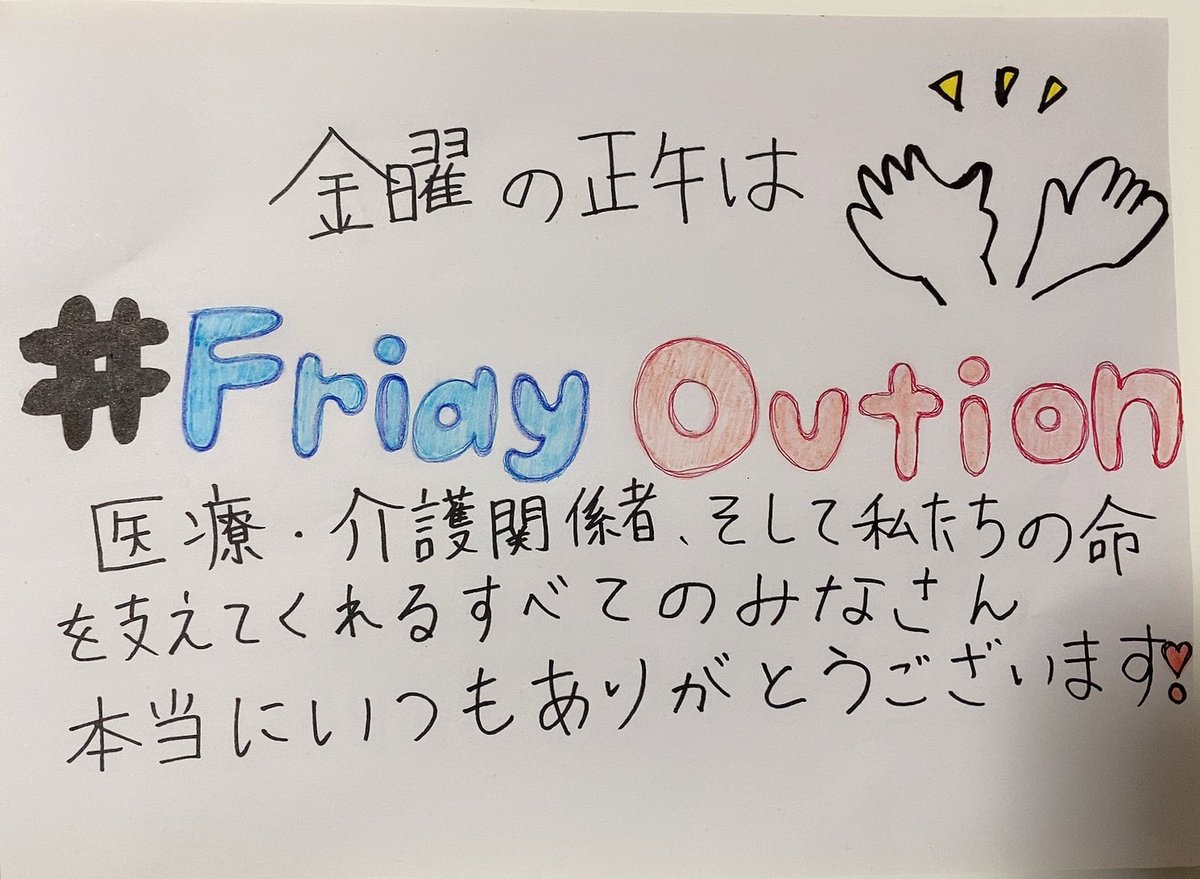 金曜の正午は
#Friay Oution
医療・介護関係者、そして私たちの命
を支えてくれるすべてのみなさん
本当にいつもありがとうございます!